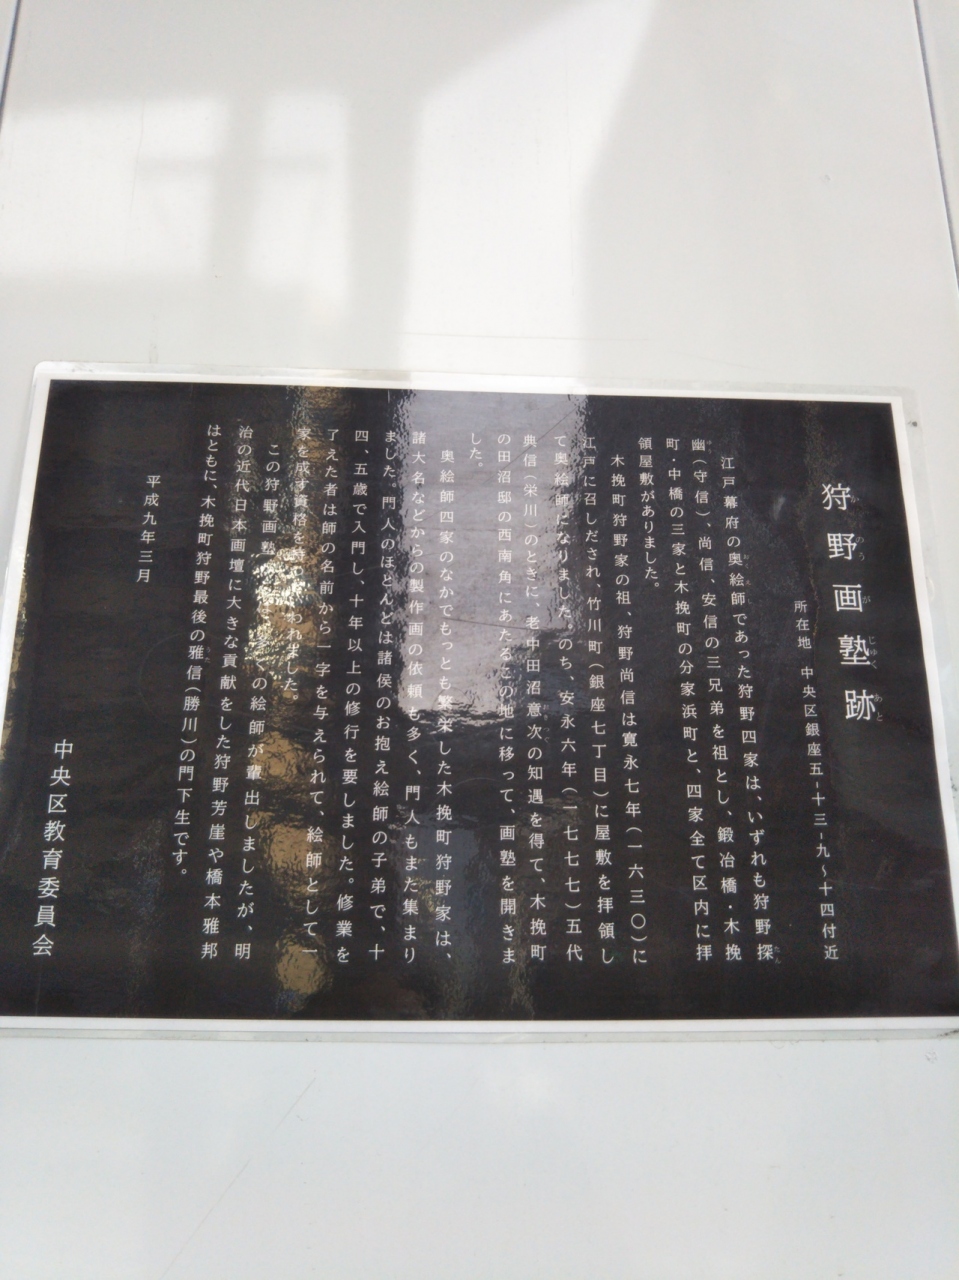 狩野画塾跡
所在地 中央区銀座五-十三-九〜十四付近
江戸幕府の奥絵師であった狩野四家は、いずれも狩野探
幽(守信)、尚信、安信の三兄弟を祖とし、鍛冶橋・木挽
町・中橋の三家と木挽町の分家浜町と、四家全て区内に拝
領屋敷がありました。
木挽町狩野家の祖、狩野尚信は寛永七年(一六三〇)に
江戸に召しだされ、竹川町(銀座七丁目)に屋敷を拝領し
て奥絵師になりました。のち、安永六年(一七七七)五代
典信(栄川)のときに、老中田沼意次の知遇を得て、木挽町
の田沼邸の西南角にあたるこの地に移って、画塾を開きま
した。
奥絵師四家のなかでもっとも繁栄した木挽町狩野家は、
諸大名などからの製作画の依頼も多く、門人もまた集まり
ました。門人のほとんどは諸侯のお抱え絵師の子弟で、十
四、五歳で入門し、十年以上の修行を要しました。修業を
了えた者は師の名前から一字を与えられて、絵師として一
家を成す資格を持つといわれました。
この狩野画塾からは多くの絵師が輩出しましたが、明
治の近代日本画壇に大きな貢献をした狩野芳崖や橋本雅邦
はともに、木挽町狩野最後の雅信(勝川)の門下生です。
平成九年三月
中央区教育委員会